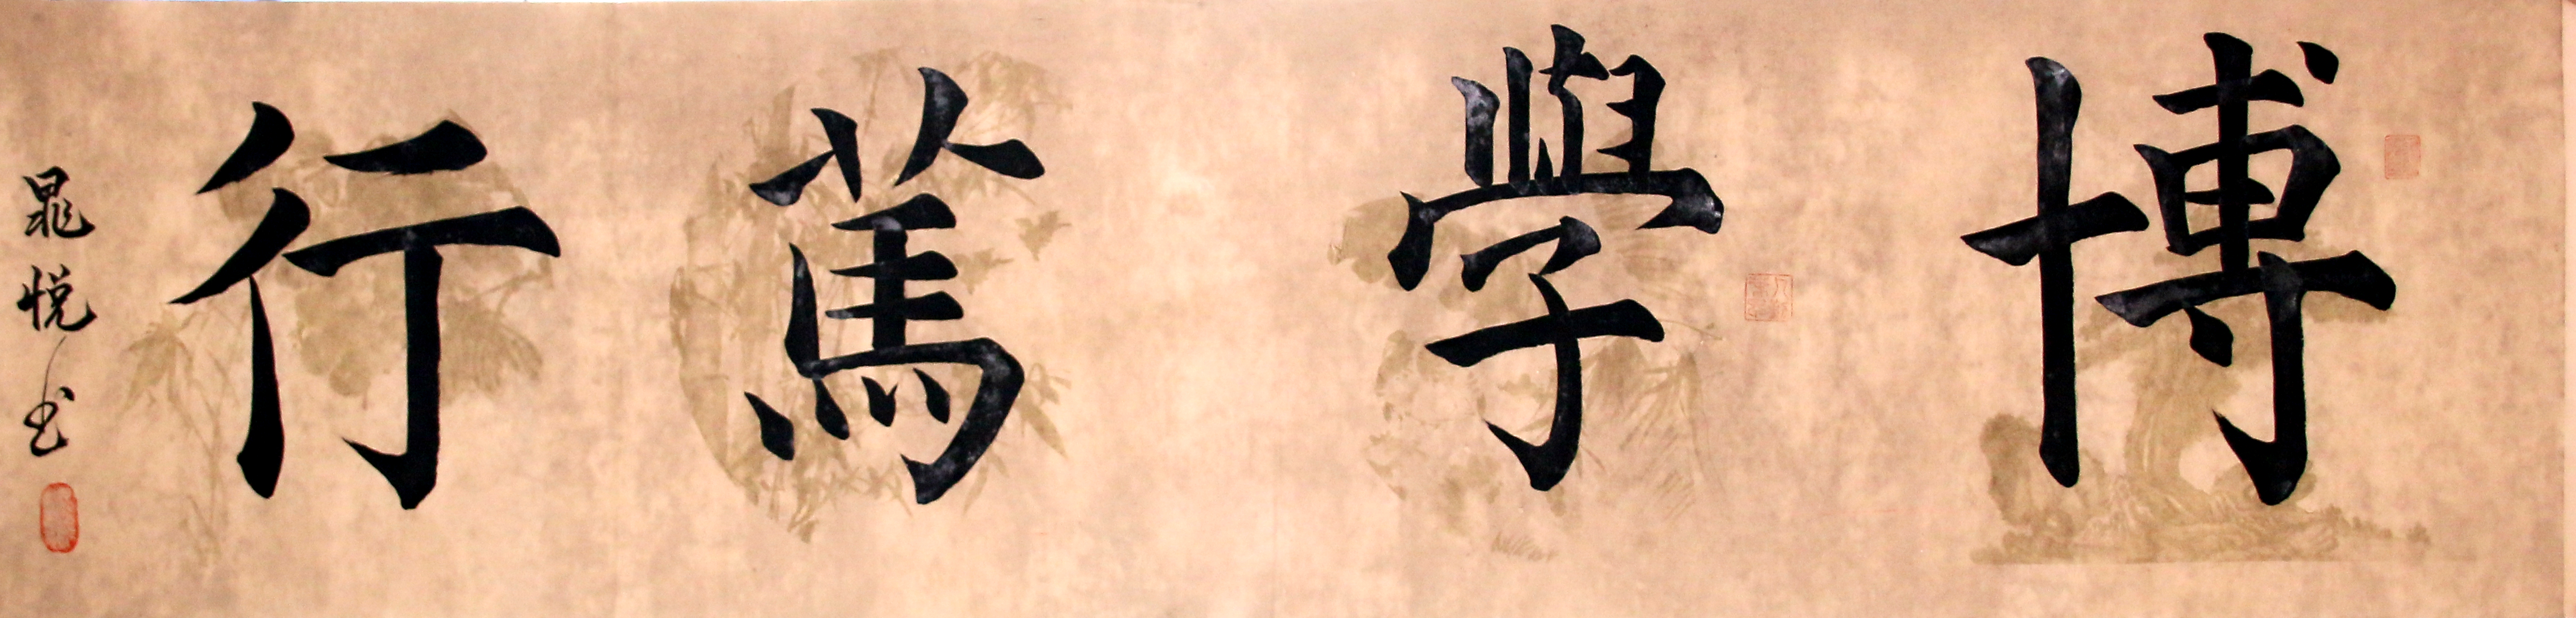 博學篤行
晁悦书